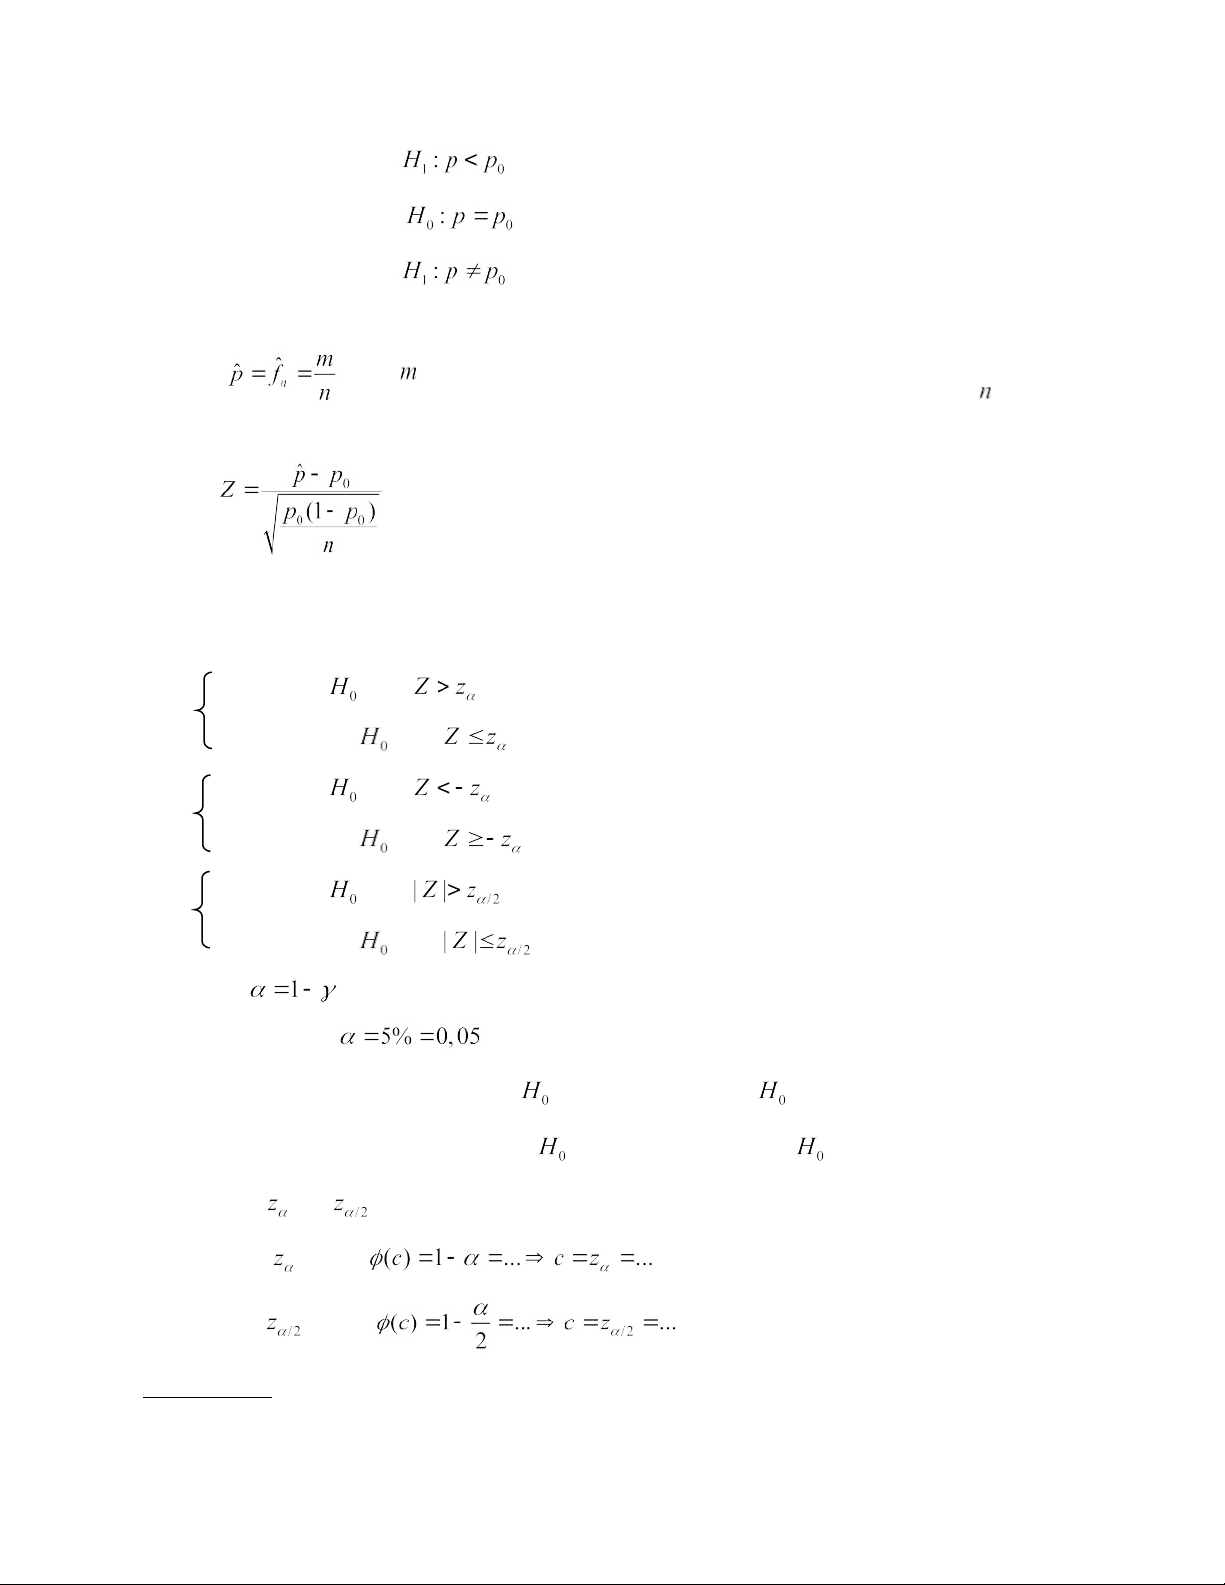 H₁ : p < p₀
H₀ : p = p₀
H₁ : p ≠ p₀
p̂ = f̂ₙ = m/n m n
Z = (p̂ - p₀) / √(p₀(1 - p₀)/n)
H₀ Z > z_α
H₀ Z ≤ z_α
H₀ Z < - z_α
H₀ Z ≥ - z_α
H₀ | Z | > z_{α/2}
H₀ | Z | ≤ z_{α/2}
α = 1 - γ
α = 5% = 0,05
H₀ H₀
H₀ H₀
z_α z_{α/2}
z_α ϕ(c) = 1 - α = ... ⇒ c = z_α = ...
z_{α/2} ϕ(c) = 1 - α/2 = ... ⇒ c = z_{α/2} = ...